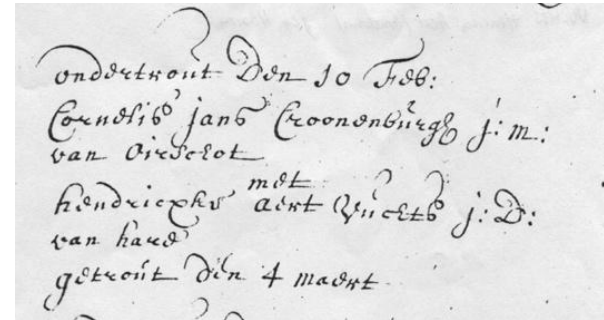 ondertrout Den 10 Feb:
Cornelis Jans Croonenburgh j: m:
van Oirschot
met
hendricxke Aert j: D:
van hare
getrout den 4 maert